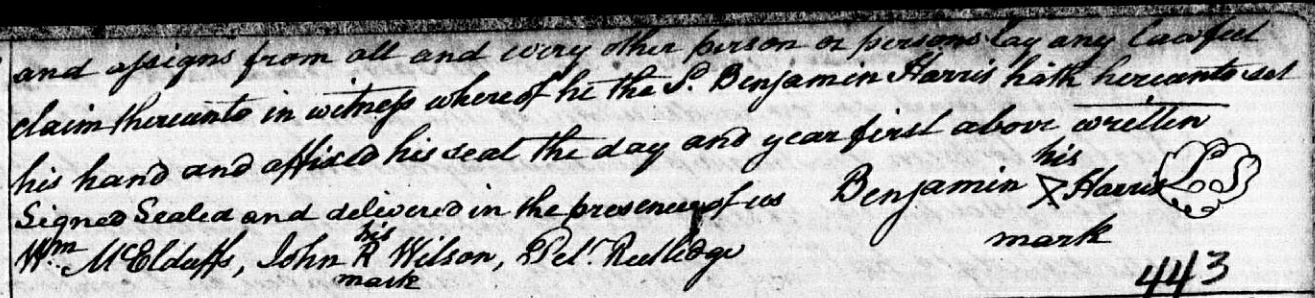 and assigns from all and every other person or persons lay any lawful
claim thereunto in witness whereof he the Sd. Benjamin Harris hath hereunto set
his hand and affixed his seal the day and year first above written
Signed Sealed and delivered in the presence of us Benjamin his X Harris LS
Wm McElduff, John his R Wilson, Rutledge mark
mark
443